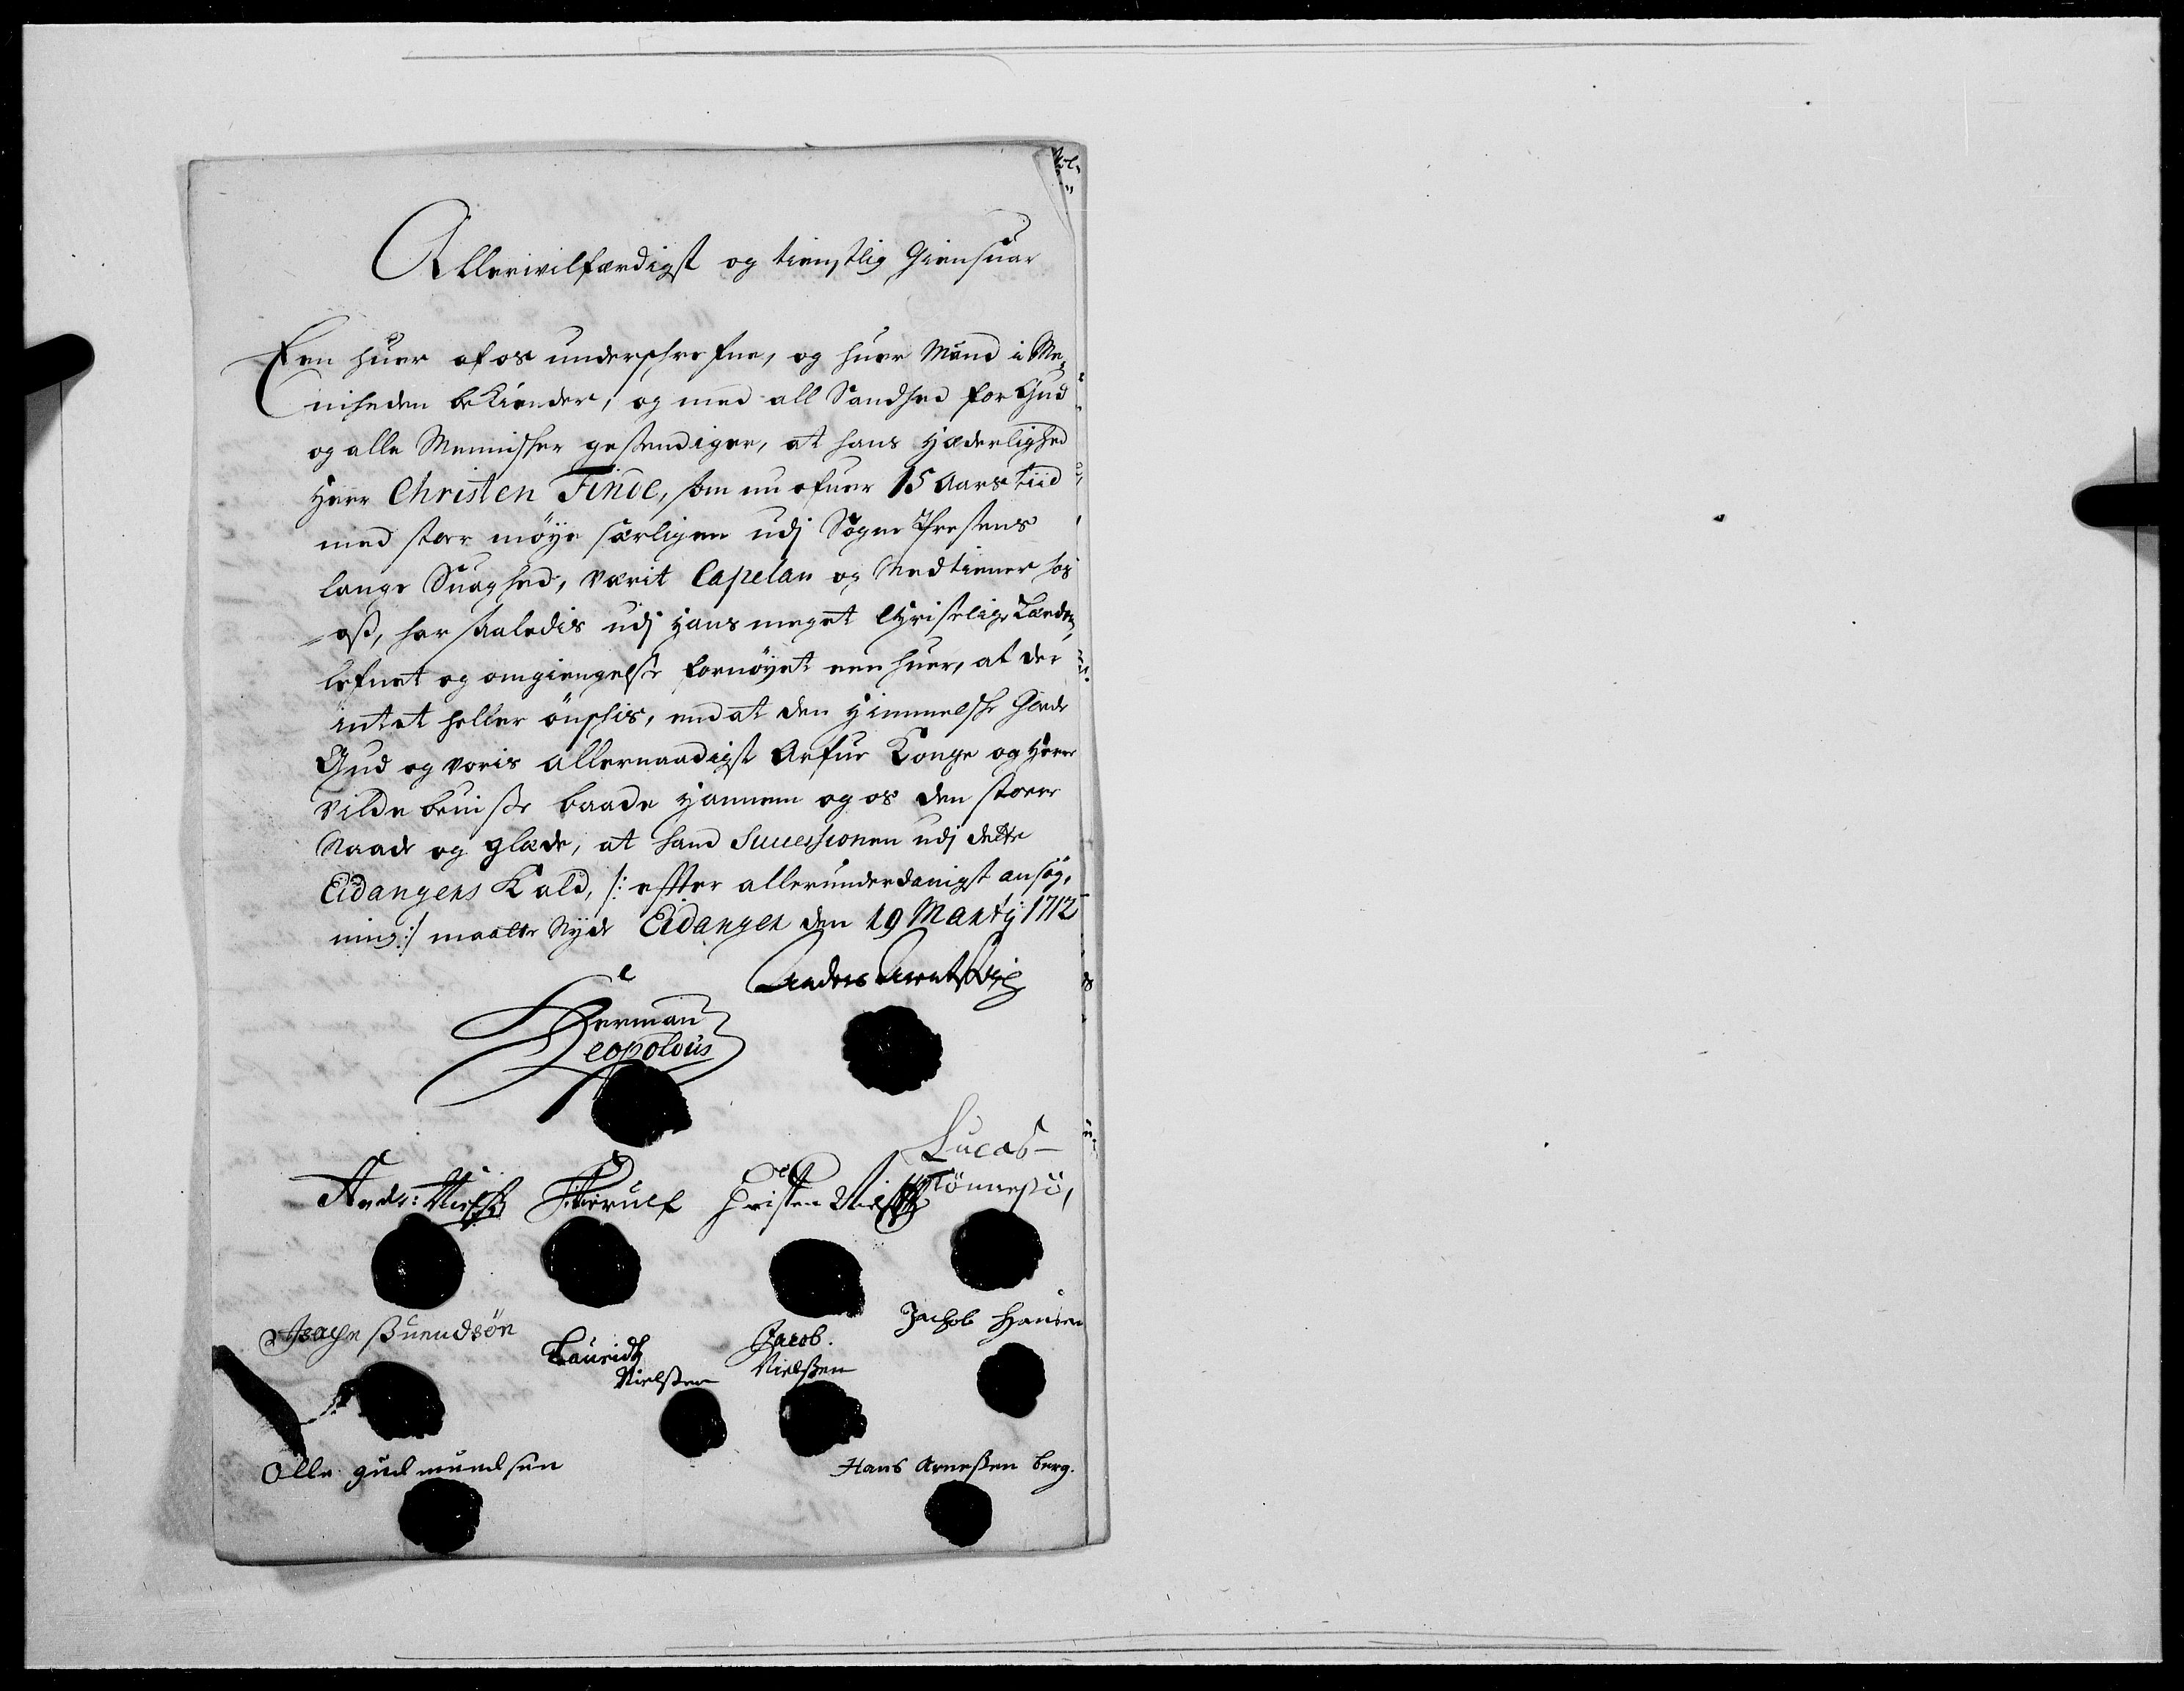 Allerwilfærdigst og tienstlig Giensuar
Een huer af os underschrefne, og huer Mand i Me,
nigheden bekiender, og med all Sandhed for Gud
og alle Mennisker gestendiger, at hans Hæderlighed
Herr Christen Finde, som nu ofuer 15 Aars tiid
med stoer möye særligen udj Sogne Prestens
lange Suaghed, værit Capelan og Medtiener hos
oss, har saaledis udj Hans meget Christelige Lærdom,
lefnet og omgiengelse fornöyet een huer, at der
intet heller önschis, end at den Himmelske Gode
Gud og voris allernaadigst Arfue Konge og Herre
vilde beuise baade Hannem og os den stoere
Naade og glæde, at hand Successionen udj dette
Eidangers Kald, /: efter allerunderdanigst ansög,
ning :/ maatte Nyde Eidanger den 19 Martij 1712
Anders
Herman
Leopoldus
Lucas
Tönnesö,
Ands: Nielss Christen
Isach Suendsön
Lauridtz
Nielssen
Jacob.
Nielssen
Jachob Hansen
Olle gudmundsen
Hans Arnessen berg.